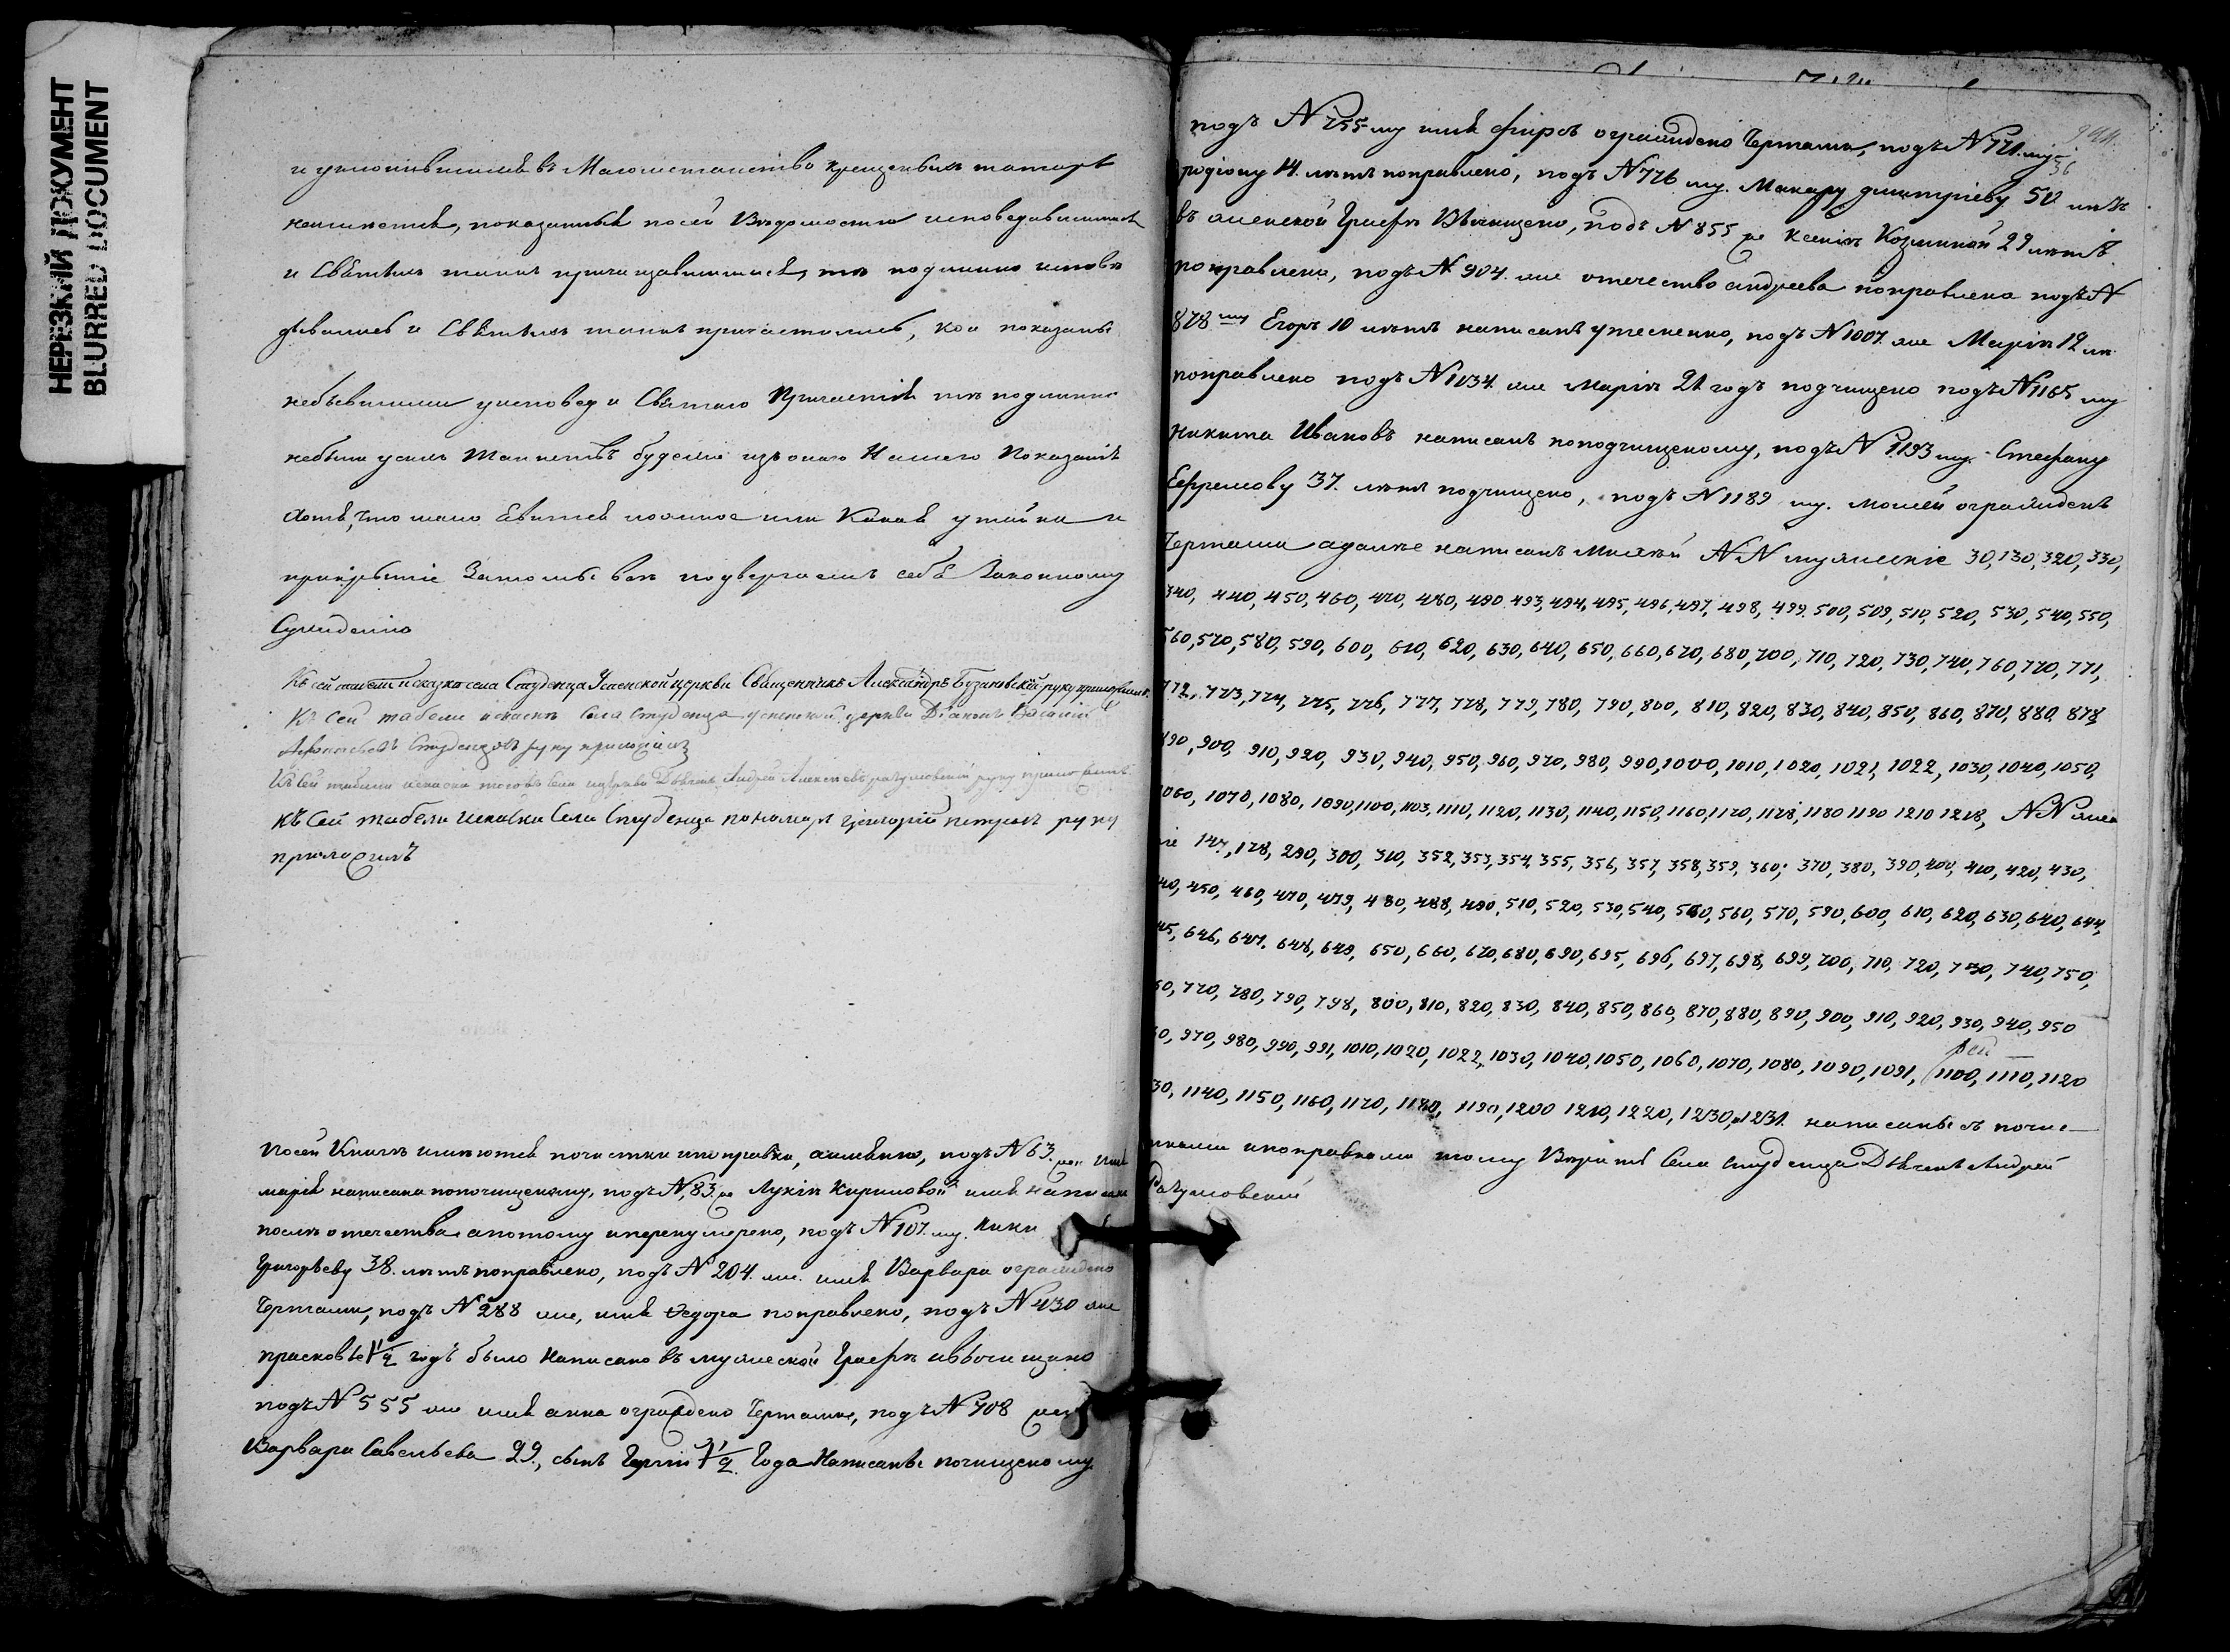 НЕРЕЗКИЙ ДОКУМЕНТ
BLURRED DOCUMENT
и уклонившихся въ Магометанство крещеныхъ татаръ
неимеется, показанныя посей Ведомости исповедавшимися
и Святыхъ таинъ причащавшимися, те подлинно испове
дывались и Святыхъ таинъ причастились, кои показаны
небывшими уисповеди Святаго Причастія те подлинно
небыли усихъ Таинствъ буде изъ онаго Нашего Показанія
хотя, что мало Евится ложное или Какая утайка и
прикрытіе Затомы все подвергаемъ себя Законному
Сужденію
Къ сей табели исказке села Студенца Успенской церкви Священникъ Александръ Бузановскій руку приложилъ.
Къ Сей табели исказке Села Студенца успенской церкви Діаконъ Василій
Афонасьевъ Студенцовъ руку приложилъ
Къ Сей табели исказки тогожъ Села церкви Дьячекъ Андрей Алексеевъ разумовскій руку приложилъ
къ Сей табели исказки Села Студенца пономарь григорій петровъ руку
приложилъ
посей Книге имеются почистки ипоправки, аименно, подъ N 63. имя
марія написана поподчищеному, подъ N, 83. Лукіи Кириловой имя написано
после отечества апотому иперенумерено, подъ N 107. му. Ники
Григорьеву 38. летъ поправлено, подъ N 204. же. имя Варвара ограждено
Чертами, подъ N 288 же, имя Ѳедора поправлено, подъ N 430 же
прасковье 1 1/2 годъ было написано въ мужеской Графе ивычищено
подъ N 555 же имя анна ограждено Чертами, подъ N 708
Варвара Савельева 29, сынъ 1 1/2. Года Написаны почищеному
подъ N 755 му имя фирсъ ограждено Чертами, подъ N 771. му
36
родіону 14. летъ поправлено, подъ N 776 му. Макару дмитріеву 50 летъ
въ женской Графе Вычищено, подъ N 855 же Ксеніи Козминой 29 летъ
поправлено, подъ N 904. же отечество андреева поправлено подъ N
878 му Егоръ 10 летъ написанъ утесненно, подъ N 1007. же Маріи 12 ле.
поправлено подъ N 1034. же маріи 21 годъ подчищено подъ N 1165 му
никита Ивановъ написанъ поподчищеному, подъ N 1193 му. Стефану
Ефремову 37. летъ подчищено, подъ N 1189 му. моисей огражденъ
Чертами адалее написанъ NN мужескіе 30, 130, 320, 330,
340, 440, 450, 460, 470, 480, 490. 493, 494, 495, 496, 497, 498, 499. 500, 509, 510, 520, 530, 540, 550,
560, 570, 580, 590, 600, 610, 620, 630, 640, 650, 660, 670, 680, 700, 710, 720, 730, 740, 760, 770, 771,
772, 773, 774, 775, 776, 777, 778, 779, 780, 790, 800, 810, 820, 830, 840, 850, 860, 870, 880, 878,
890, 900, 910, 920, 930, 940, 950, 960, 970, 980, 990, 1000, 1010, 1020, 1021, 1022, 1030, 1040, 1050,
1060, 1070, 1080, 1090, 1100, 1103, 1110, 1120, 1130, 1140, 1150, 1160, 1170, 1178, 1180 1190 1210 1218, NN
147, 178, 290, 300, 310, 352, 353, 354, 355, 356, 357, 358, 359, 360; 370, 380, 390, 400, 410, 420, 430,
40, 450, 460, 470, 479, 480, 488, 490, 510, 520, 530, 540, 550, 560, 570, 590, 600, 610, 620, 630, 640, 644,
45, 646, 647. 648, 649, 650, 660, 670, 680, 690, 695, 696, 697, 698, 699, 700, 710, 720, 730, 740, 750,
60, 770, 780, 790, 798, 800, 810, 820, 830, 840, 850, 860, 870, 880, 890, 900, 910, 920, 930, 940, 950
60, 970, 980, 990, 991, 1010, 1020, 1022, 1030, 1040, 1050, 1060, 1070, 1080, 1090, 1091, 1100, 1110, 1120
30, 1140, 1150, 1160, 1170, 1180, 1190, 1200 1210, 1220, 1230, 1231. написаны съ почис
тками ипоправками тому Верить Села студенца Дьячекъ Андрей
Разумовскій